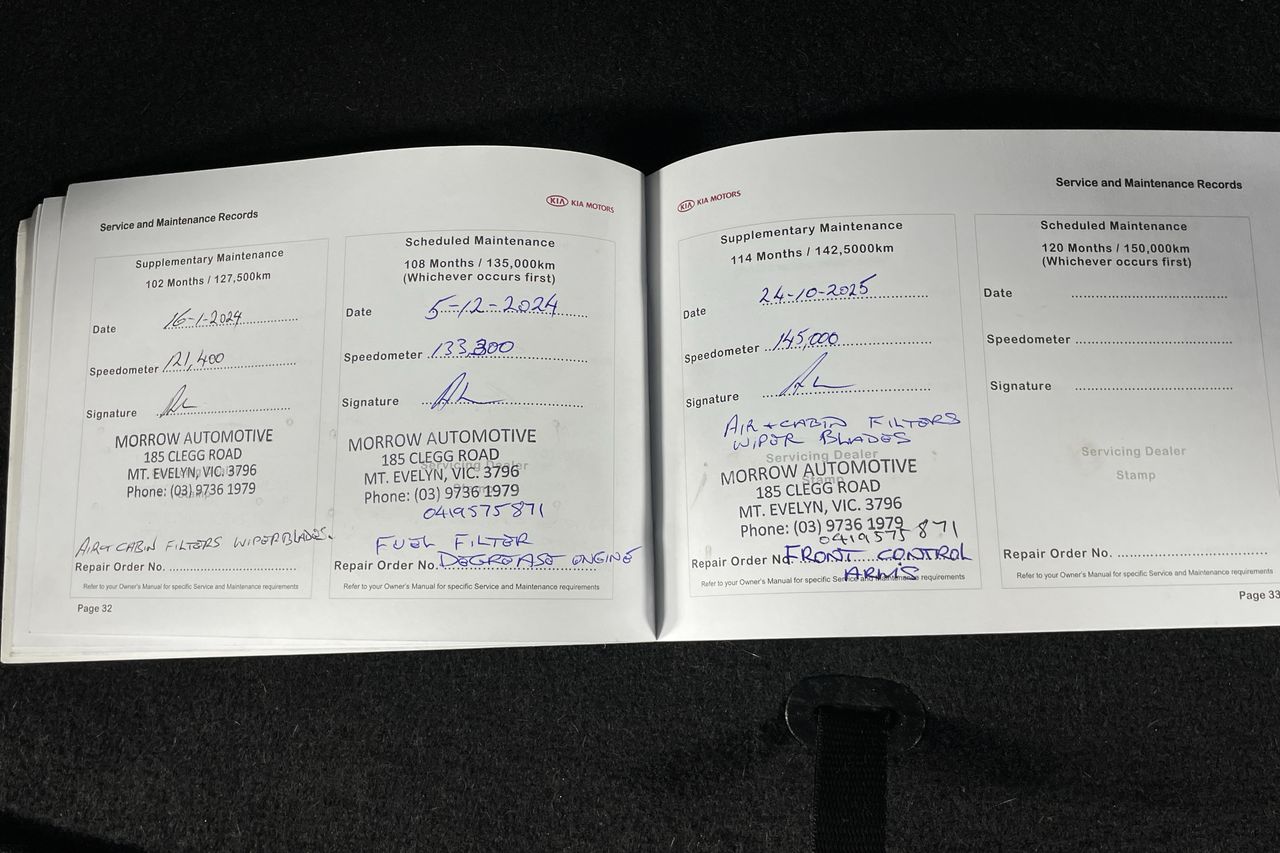 Service and Maintenance Records
KIA KIA MOTORS
Supplementary Maintenance
102 Months / 127,500km
Date 16-1-2024
Speedometer 121,400
Signature
MORROW AUTOMOTIVE
185 CLEGG ROAD
MT. EVELYN, VIC. 3796
Phone: (03) 9736 1979
AIR + CABIN FILTERS WIPER BLADES.
Repair Order No.
Refer to your Owner's Manual for specific Service and Maintenance requirements
Page 32
Scheduled Maintenance
108 Months / 135,000km
(Whichever occurs first)
Date 5-12-2024
Speedometer 133,300
Signature
Servicing Dealer
MORROW AUTOMOTIVE
185 CLEGG ROAD
MT. EVELYN, VIC. 3796
Phone: (03) 9736 1979
0419575871
FUEL FILTER
Repair Order No. DEGREASE ENGINE
Refer to your Owner's Manual for specific Service and Maintenance requirements
KIA KIA MOTORS
Supplementary Maintenance
114 Months / 142,5000km
Date 24-10-2025
Speedometer 145,000
Signature
AIR + CABIN FILTERS
WIPER BLADES
Servicing Dealer
Stamp
MORROW AUTOMOTIVE
185 CLEGG ROAD
MT. EVELYN, VIC. 3796
Phone: (03) 9736 1979
0419575871
Repair Order No. FRONT CONTROL
ARMS
Refer to your Owner's Manual for specific Service and Maintenance requirements
Service and Maintenance Records
Scheduled Maintenance
120 Months / 150,000km
(Whichever occurs first)
Date
Speedometer
Signature
Servicing Dealer
Stamp
Repair Order No.
Refer to your Owner's Manual for specific Service and Maintenance requirements
Page 33